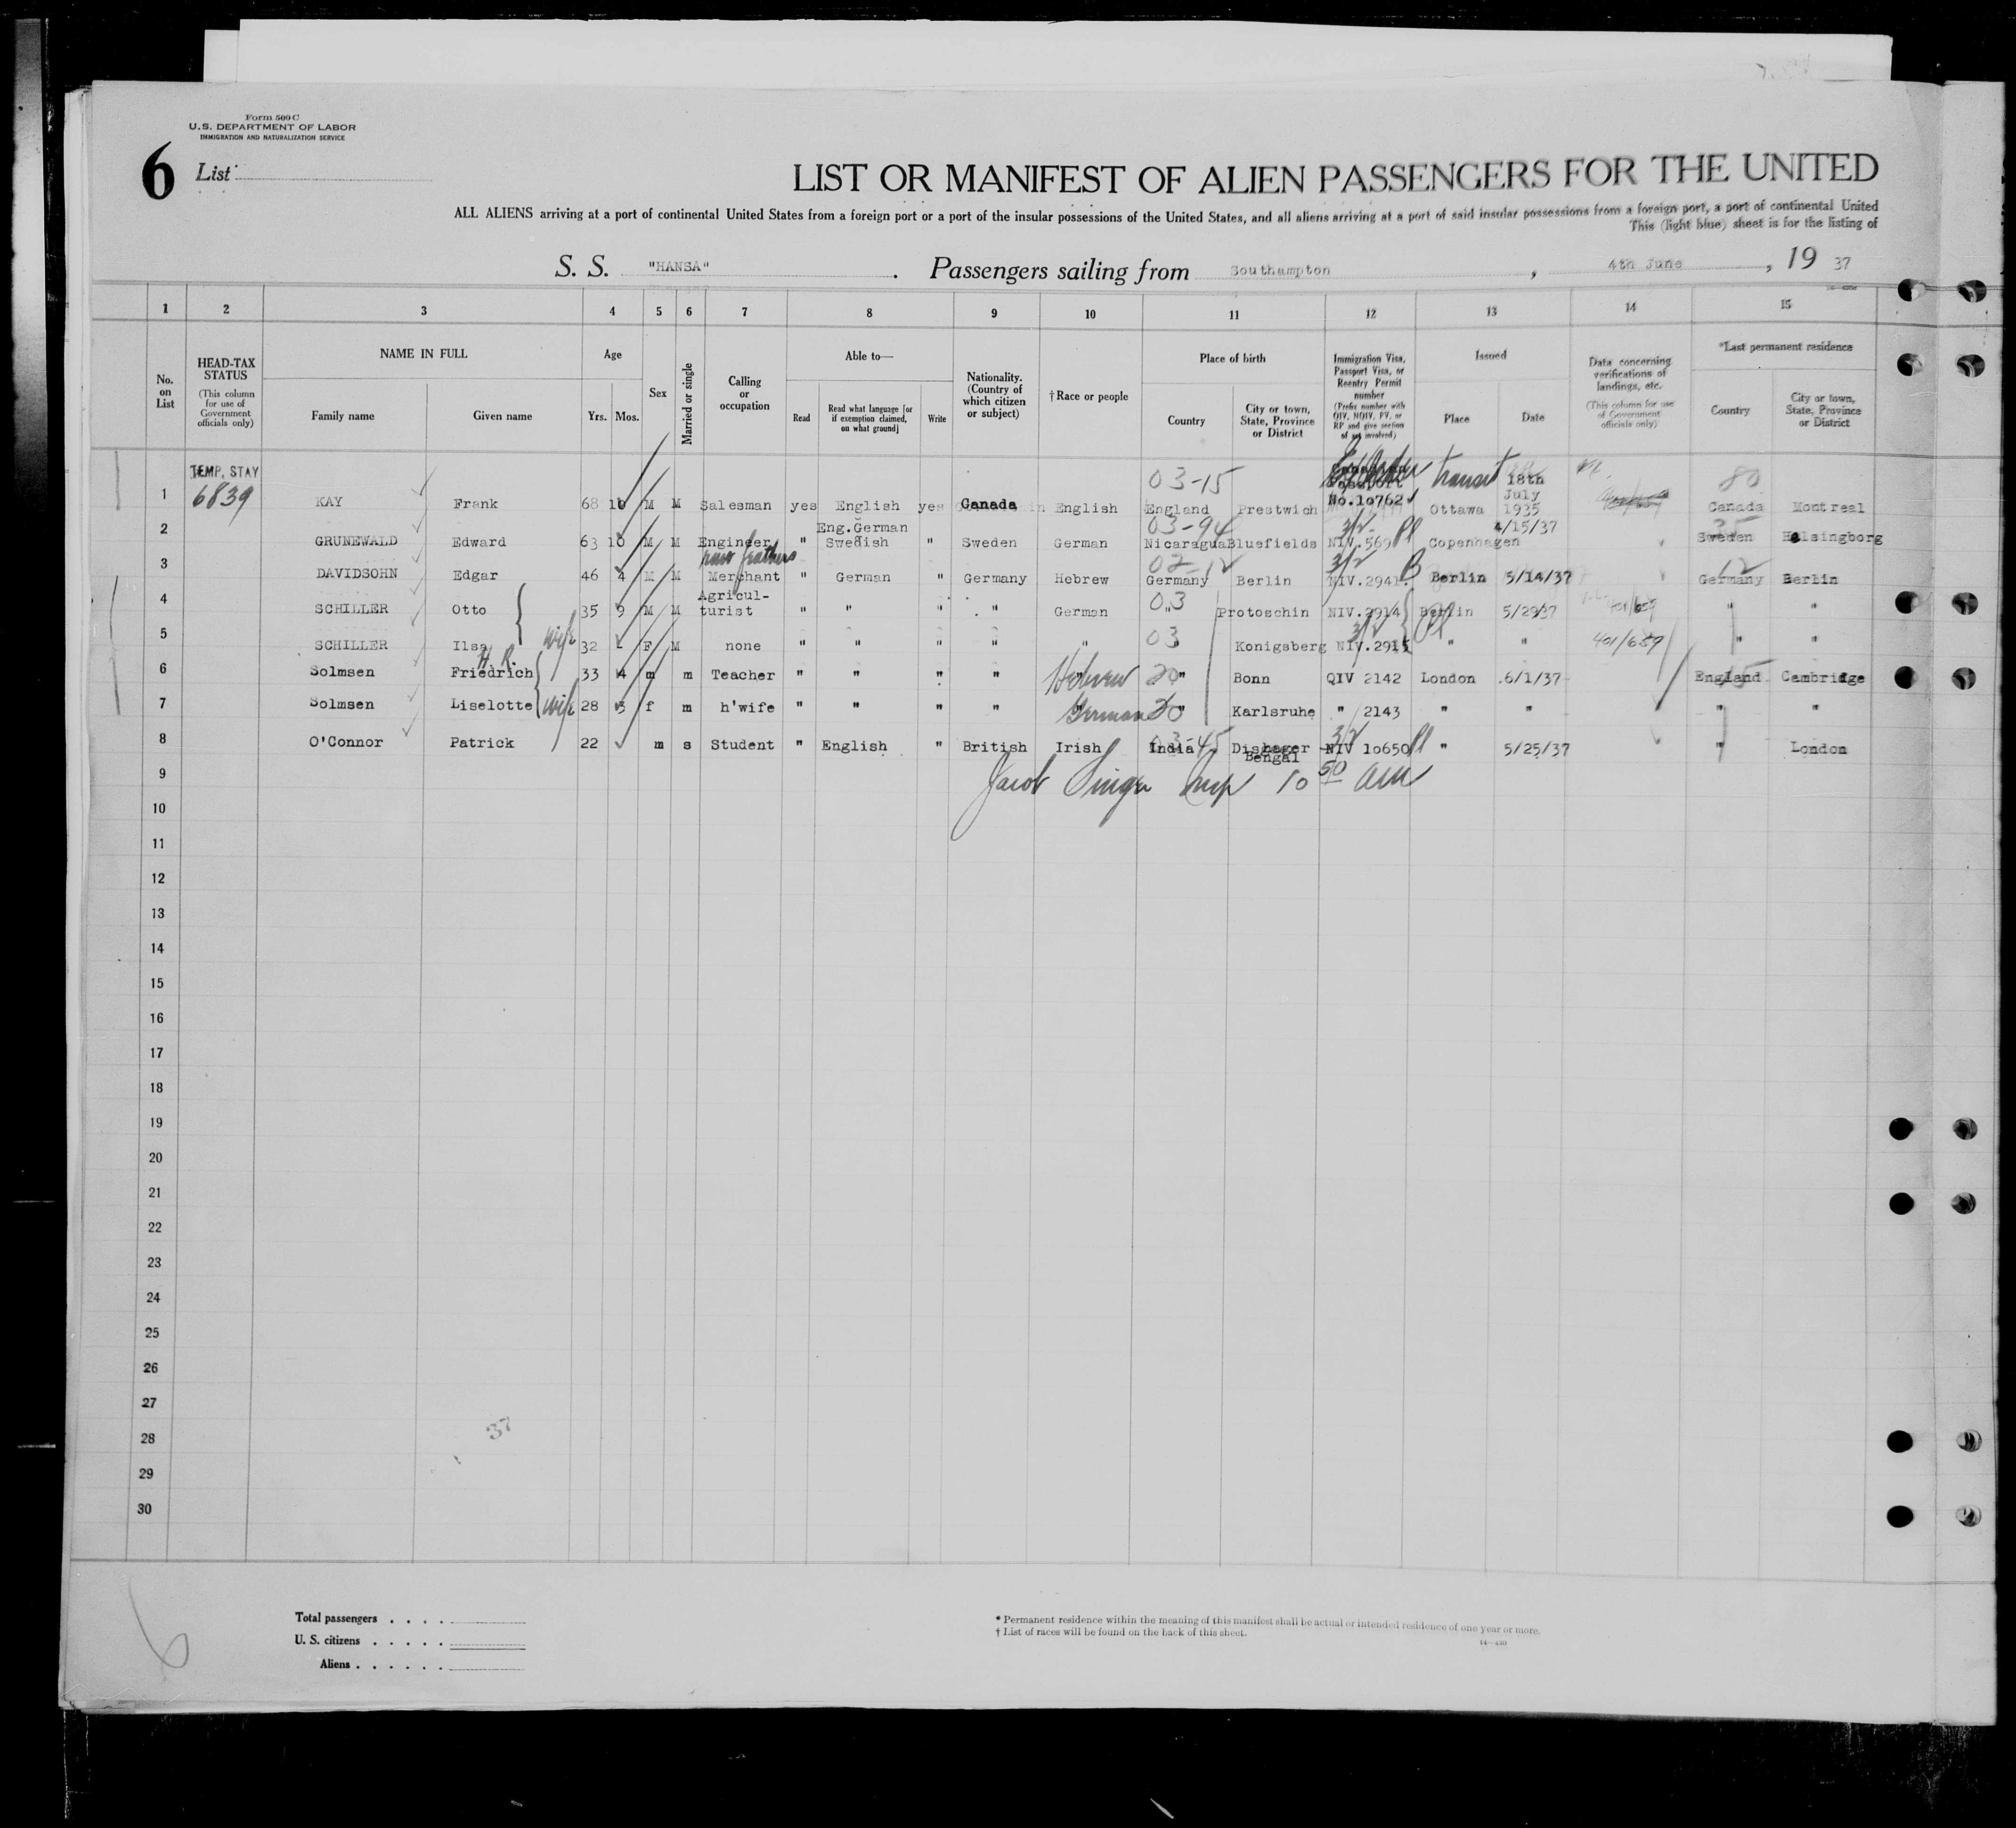 Form 500 C
U.S. DEPARTMENT OF LABOR
IMMIGRATION AND NATURALIZATION SERVICE
6 List
LIST OR MANIFEST OF ALIEN PASSENGERS FOR THE UNITED
ALL ALIENS arriving at a port of continental United States from a foreign port or a port of the insular possessions of the United States, and all aliens arriving at a port of said insular possessions from a foreign port, a port of continental United
This (light blue) sheet is for the listing of
S. S. "HANSA". Passengers sailing from Southampton, 4th June, 19 37
1 2 3 4 5 6 7 8 9 10 11 12 13 14 15
No. on List
HEAD-TAX STATUS (This column for use of Government officials only)
NAME IN FULL Family name Given name
Age Yrs. Mos.
Sex
Married or single
Calling or occupation
Able to— Read Read what language [or if exemption claimed, on what ground] Write
Nationality. (Country of which citizen or subject)
† Race or people
Place of birth Country City or town, State, Province or District
Immigration Visa, Passport Visa, or Reentry Permit number (Prefix number with QIV, NQIV, PV, or RP and give section of act involved)
Issued Place Date
Data concerning verifications of landings, etc. (This column for use of Government officials only)
*Last permanent residence Country City or town, State, Province or District
TEMP. STAY 03-15 transit 18th 80
1 6839 KAY Frank 68 10 M M Salesman yes English yes Canada English England Prestwich No.10762 Ottawa July 1935 Canada Montreal
Eng.German 03-94 3/2 4/15/37 35
2 GRUNEWALD Edward 63 10 M M Engineer " Swedish " Sweden German Nicaragua Bluefields NIV.569 Copenhagen Sweden Helsingborg
raw feathers 3/2 12
3 DAVIDSOHN Edgar 46 4 M M Merchant " German " Germany Hebrew Germany Berlin NIV.2941. B Berlin 5/14/37 Germany Berlin
Agricul- 03
4 SCHILLER Otto 35 9 M M turist " " " " German " Protoschin NIV.2914 Berlin 5/29/37 401/659 " "
wife 03 3/2
5 SCHILLER Ilse 32 - F M none " " " " " Konigsberg NIV.2915 " " 401/659 " "
H. R.
6 Solmsen Friedrich 33 4 m m Teacher " " " " Hebrew 20 " Bonn QIV 2142 London 6/1/37 England Cambridge
7 Solmsen Liselotte wife 28 3 f m h'wife " " " " German 20 " Karlsruhe " 2143 " " " "
03-45 3/2
8 O'Connor Patrick 22 m s Student " English " British Irish India Bengal NIV 10650 " 5/25/37 " London
9 Jacob Singer Insp 10 50 am
10
11
12
13
14
15
16
17
18
19
20
21
22
23
24
25
26
27
28 37
29
30
6
Total passengers . . . .
U. S. citizens . . . . .
Aliens . . . . . .
* Permanent residence within the meaning of this manifest shall be actual or intended residence of one year or more.
† List of races will be found on the back of this sheet.
14—430